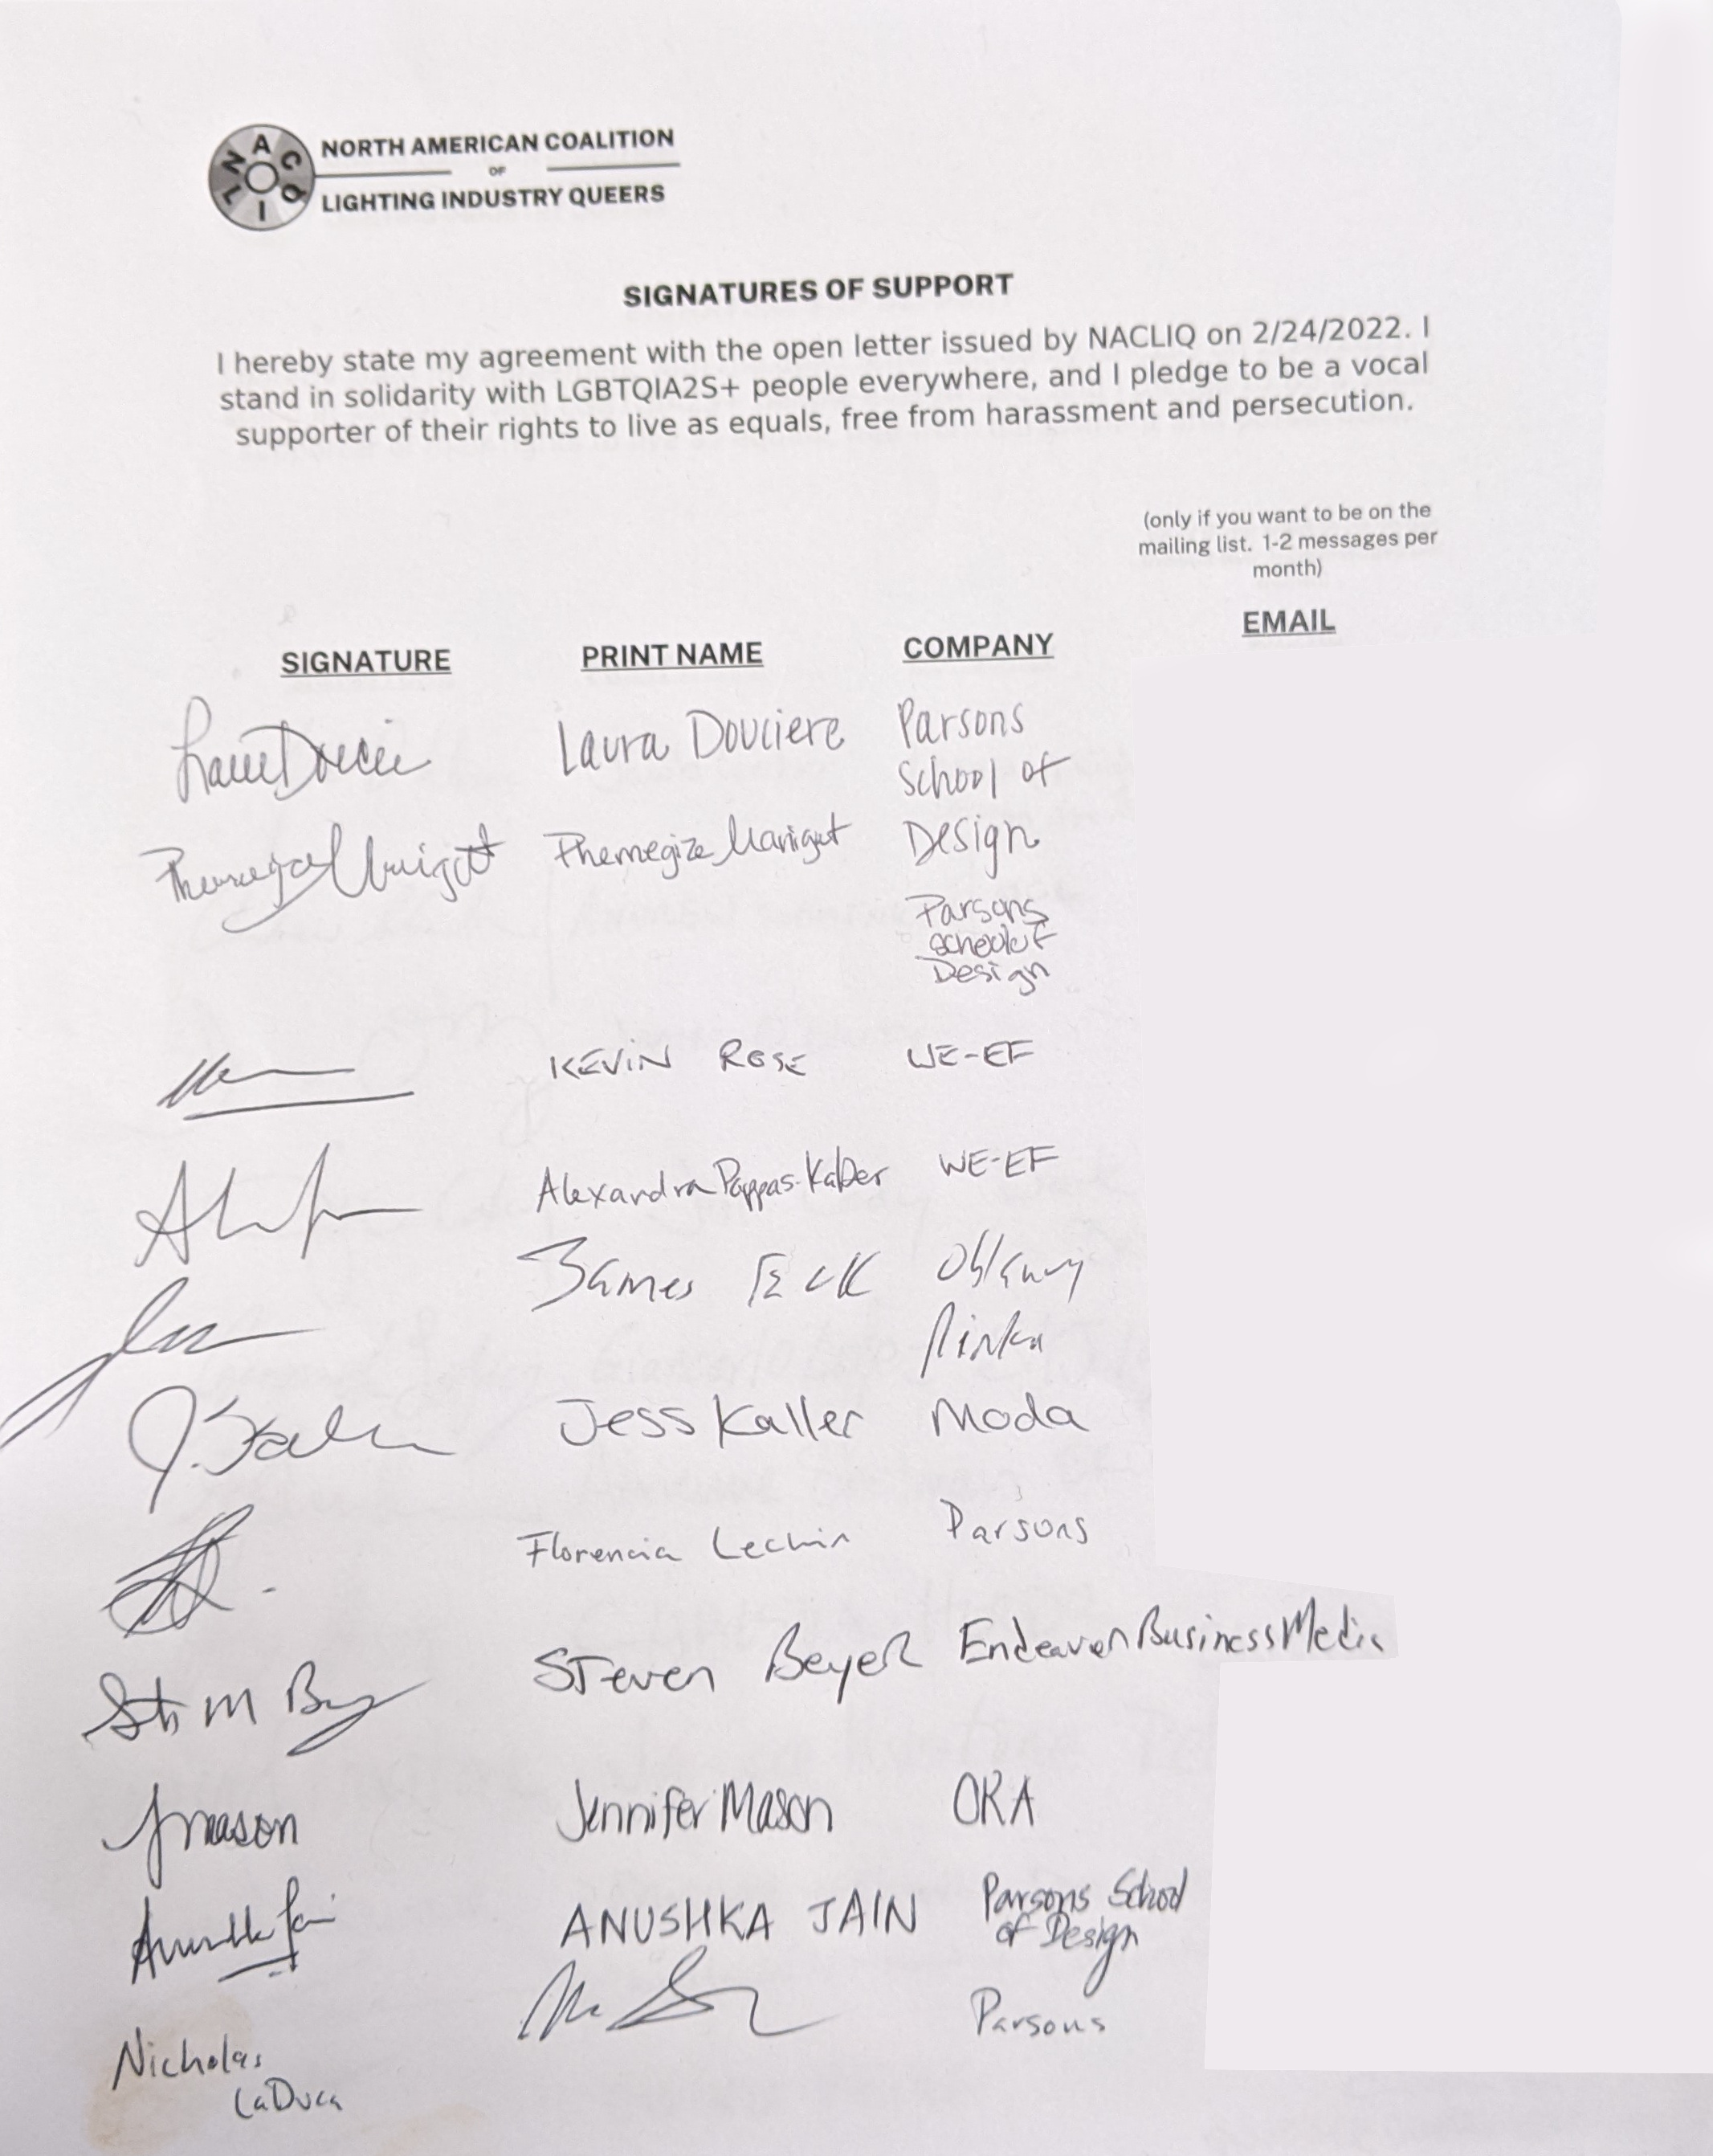 NORTH AMERICAN COALITION
OF
LIGHTING INDUSTRY QUEERS
SIGNATURES OF SUPPORT
I hereby state my agreement with the open letter issued by NACLIQ on 2/24/2022. I
stand in solidarity with LGBTQIA2S+ people everywhere, and I pledge to be a vocal
supporter of their rights to live as equals, free from harassment and persecution.
(only if you want to be on the
mailing list. 1-2 messages per
month)
SIGNATURE PRINT NAME COMPANY EMAIL
Laura Douciere Parsons
School of
Design
Parsons
School of
Design
KEVIN ROSE WE-EF
Alexandra Pappas-Kalber WE-EF
James Eck
Jess Kaller Moda
Florencia Lechin Parsons
Steven Beyer Endeavor Business Media
JMason Jennifer Mason ORA
ANUSHKA JAIN Parsons School
of Design
Nicholas Parsons
LaDuca